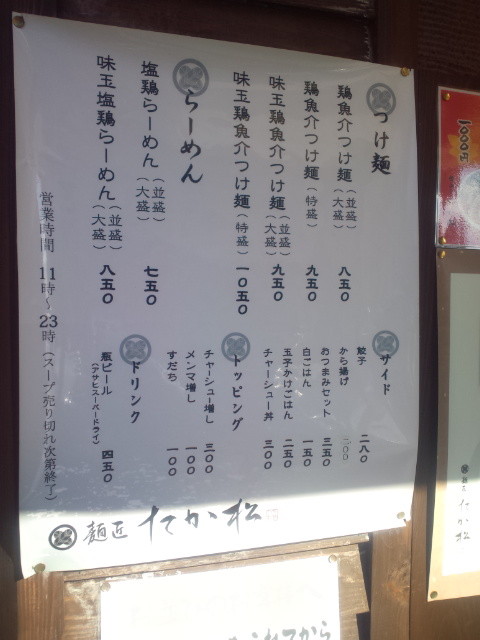 つけ麺
鶏魚介つけ麺(並盛)(大盛) 八五〇
鶏魚介つけ麺(特盛) 九五〇
味玉鶏魚介つけ麺(並盛)(大盛) 九五〇
味玉鶏魚介つけ麺(特盛) 一〇五〇
らーめん
塩鶏らーめん(並盛)(大盛) 七五〇
味玉塩鶏らーめん(並盛)(大盛) 八五〇
サイド
餃子 二八〇
から揚げ 二〇〇
おつまみセット 三五〇
白ごはん 一五〇
玉子かけごはん 二五〇
チャーシュー丼 三〇〇
トッピング
チャーシュー増し 三〇〇
メンマ増し 一〇〇
すだち 一〇〇
ドリンク
瓶ビール 四五〇
(アサヒスーパードライ)
営業時間 11時~23時(スープ売り切れ次第終了)
麺匠 たか松
1000円
麺匠 たか松